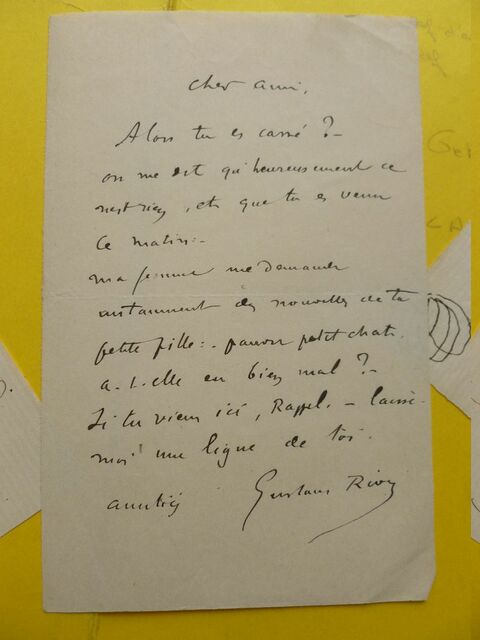 Cher ami,
Alors tu es cassé ? –
on me dit qu'heureusement ce
n'est rien, et que tu es venu
ce matin : –
ma femme me demande
instamment des nouvelles de ta
petite fille : – pauvre petit chat.
a-t-elle eu bien mal ? –
Si tu viens ici, Rappel. – laisse-
moi une ligne de toi.
amitiés
Gustave Rivet